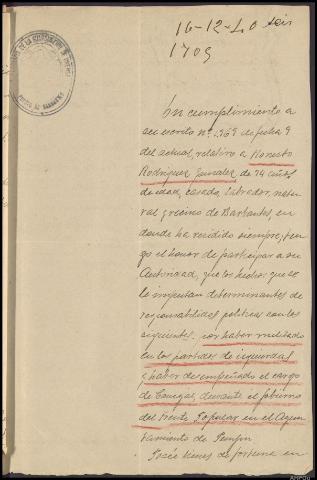 16-12-40
1709
En cumplimiento a
su escrito nº 1.969 de fecha 9
del actual, relativo a Honesto
Rodriguez Gonzalez de 74 años
de edad, casado, labrador, natu-
ral y vecino de Barbantes, en
donde ha residido siempre, ten-
go el honor de participar a su
Autoridad, que los hechos que se
le imputan determinantes de
responsabilidades politicas son los
siguientes, por haber militado
en los partidos de izquierdas
y haber desempeñado el cargo
de Concejal, durante el gobierno
del Frente Popular en el Ayun-
tamiento de Punjin
Posée bienes de fortuna en